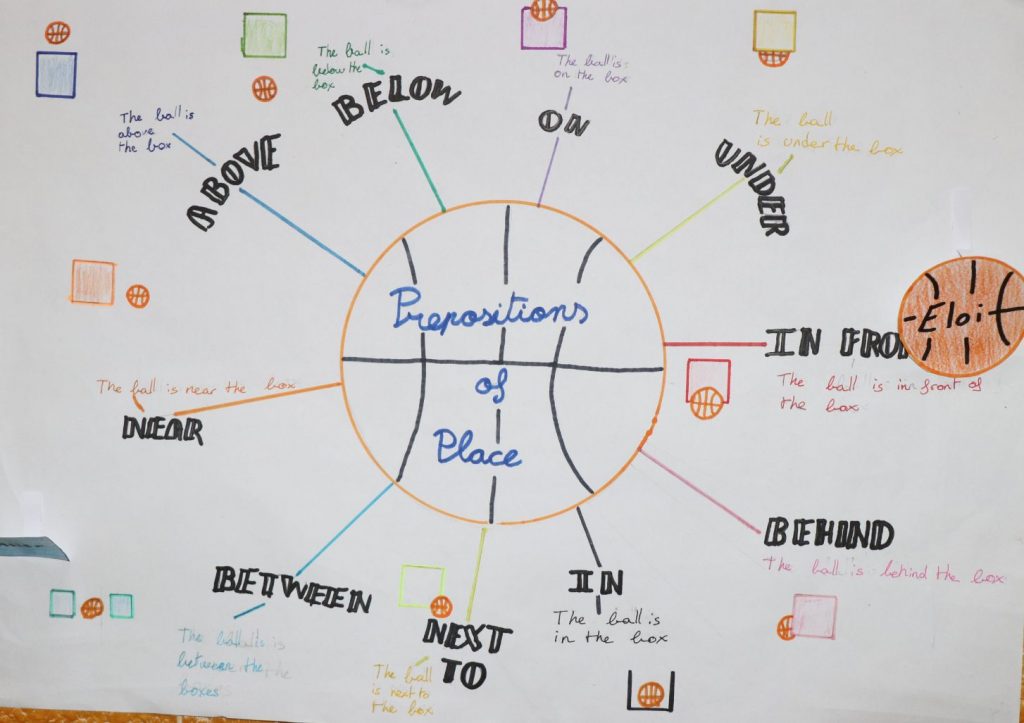 Prepositions
of
Place
ABOVE
The ball is
above
the box
BELOW
The ball is
below the
box
ON
The ball is
on the box
UNDER
The ball
is under the box
IN FRO
Eloi
The ball is in front of
the box
BEHIND
The ball is behind the box
IN
The ball is
in the box
NEXT
TO
The ball
is next to
the box
BETWEEN
The ball is
between the
boxes
The ball is near the box
NEAR